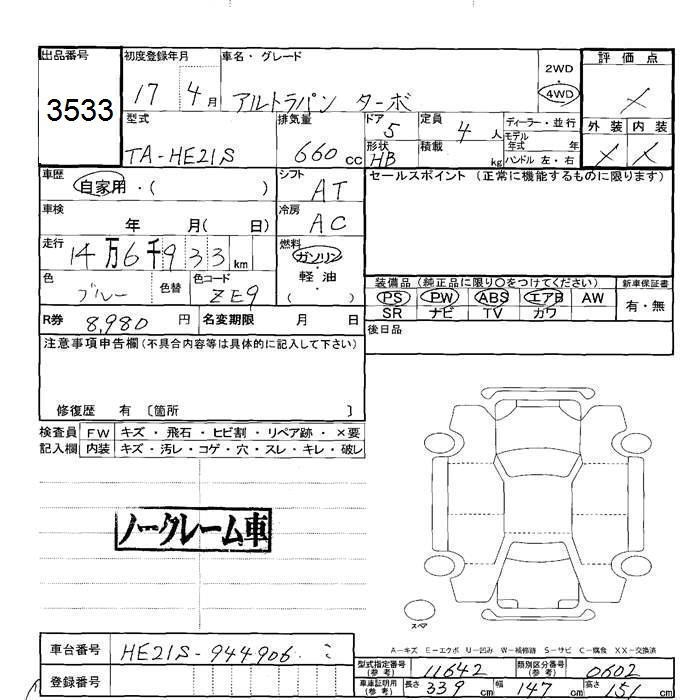 出品番号 初度登録年月 車名・グレード 評価点
3533 17 4月 アルトラパン ターボ 2WD 4WD ×
型式 排気量 ドア 定員 ディーラー・並行 外装 内装
TA-HE21S 660cc 5 4人 モデル年式 年 × ×
形状 積載 HB kg ハンドル 左・右
車歴 自家用・( ) シフト AT セールスポイント (正常に機能するものに限ります)
車検 年 月( 日) 冷房 AC
走行 14万6千933km 燃料 ガソリン・軽油 ( )
色 ブルー 色替 色コード ZE9
装備品 (純正品に限り○をつけてください) 新車保証書
PS PW ABS エアB AW 有・無
SR ナビ TV カワ
R券 8,980円 名変期限 月 日 後日品
注意事項申告欄(不具合内容等は具体的に記入して下さい)
修復歴 有 〔箇所 〕
検査員 FW キズ・飛石・ヒビ割・リペア跡・×要
記入欄 内装 キズ・汚レ・コゲ・穴・スレ・キレ・破レ
ノークレーム車
スペア
A-キズ E-エクボ U-凹み W-補修跡 S-サビ C-腐食 XX-交換済
車台番号 HE21S-944906
登録番号
型式指定番号(参考) 11642 類別区分番号(参考) 0602
車庫証明用(参考) 長さ 339cm 幅 147cm 高さ 151cm